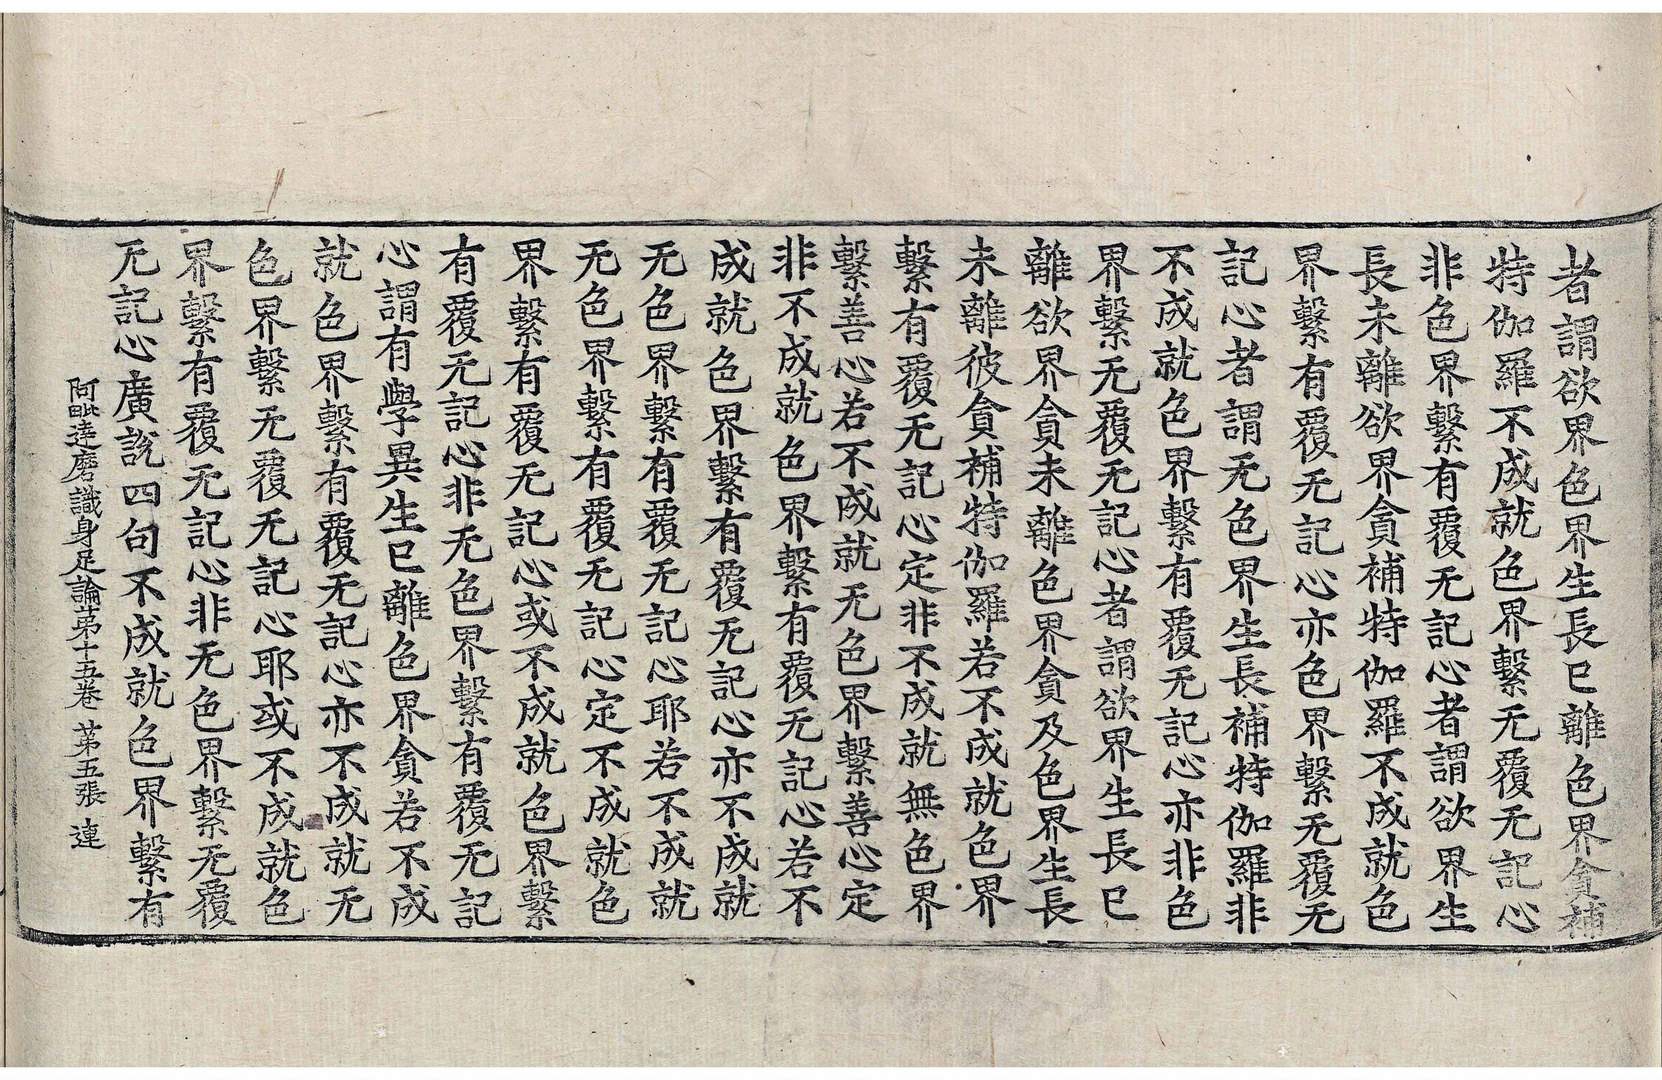 者謂欲界色界生長已離色界貪補
特伽羅不成就色界繫无覆无記心
非色界繫有覆无記心者謂欲界生
長未離欲界貪補特伽羅不成就色
界繫有覆无記心亦色界繫无覆无
記心者謂无色界生長補特伽羅非
不成就色界繫有覆无記心亦非色
界繫无覆无記心者謂欲界生長已
離欲界貪未離色界貪及色界生長
未離彼貪補特伽羅若不成就色界
繫有覆无記心定非不成就無色界
繫善心若不成就无色界繫善心定
非不成就色界繫有覆无記心若不
成就色界繫有覆无記心亦不成就
无色界繫有覆无記心耶若不成就
无色界繫有覆无記心定不成就色
界繫有覆无記心或不成就色界繫
有覆无記心非无色界繫有覆无記
心謂有學異生已離色界貪若不成
就色界繫有覆无記心亦不成就无
色界繫无覆无記心耶或不成就色
界繫有覆无記心非无色界繫无覆
无記心廣說四句不成就色界繫有
阿毗達磨識身足論苐十五卷 苐五張 連